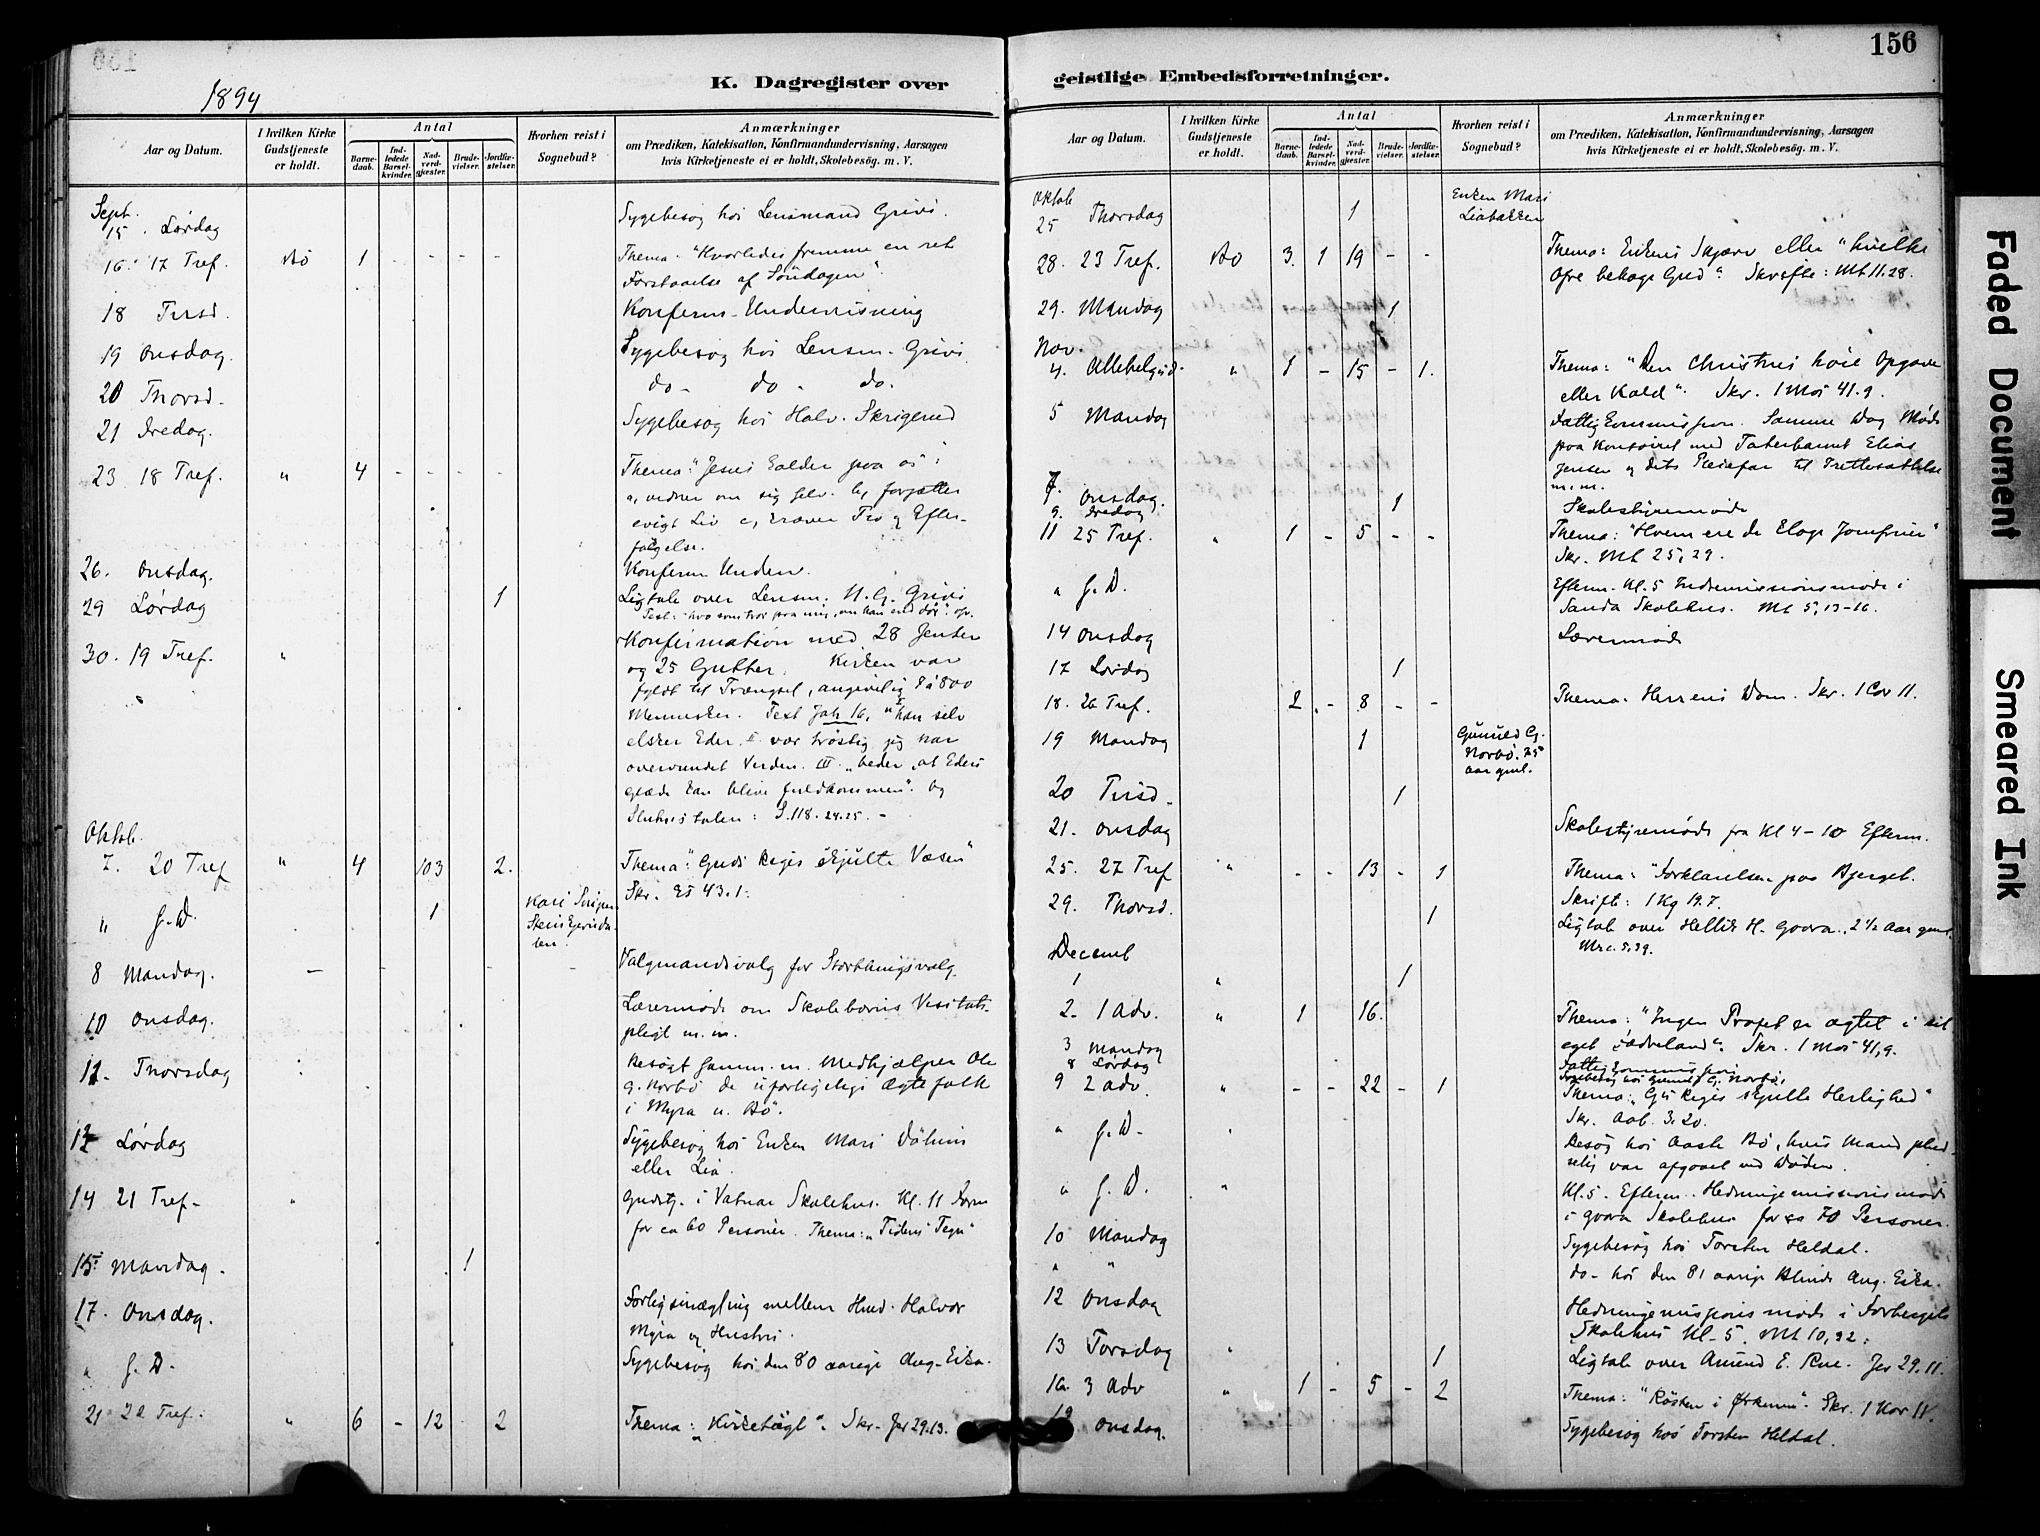 156
1894
K. Dagregister over
geistlige Embedsforretninger.
Aar og Datum.
I hvilken Kirke Gudstjeneste er holdt.
Antal
Barnedaab.
Indledede Barselkvinder.
Nadverdgjæster.
Brudevielser.
Jordfæstelser.
Hvorhen reist i Sognebud?
Anmærkninger
om Prædiken, Katekisation, Konfirmandundervisning, Aarsagen
hvis Kirketjeneste ei er holdt, Skolebesøg. m. V.
Sept.
15. Lørdag Sygebesøg hos Lensmand Grivi.
16. 17 Tref. Bø 1 - - - - Thema: "Hvorledes fremme en ret
Forstaaelse af Søndagen".
18 Tirsd. Konferm-Undervisning
19 Onsdag. Sygebesøg hos Lensm. Grivi
20 Thorsd. do - do - do.
21 Fredag. Sygebesøg hos Halv. Skrigerud
23 18 Tref. " 4 - - - - Thema: "Jesus kalder paa os:
a, vidner om sig selv. b, forjætter
evigt Liv c, kræver Tro og Efter-
følgelse.
26. Onsdag. Konferm Underv.
29 Lørdag 1 Ligtale over Lensm. H. G. Grivi
Text: "hvo som tror paa mig, om han end dør".
30. 19 Tref. " Konfirmation med 28 Jenter
og 25 Gutter. Kirken var
fyldt til Trængsel, angivelig 7 à 800
Mennesker. Text Joh 16, "han selv
elsker Eder. II vær trøstig jeg har
overvundet Verden. III. "beder, at Eders
glæde kan blive fuldkommen". Og
Slutnis talen: S. 118. 24.25. -
Oktob.
7. 20 Tref " 4 103 2. Thema: "Guds Riges skjulte Væsen"
Skr. Es 43.1.
" s. D. 1 Kari
8 Mandag. - - - - Valgmandsvalg for Storthingsvalg.
10 Onsdag. Lærermøde om Skolebørns Visitats-
pligt m.m.
11. Thorsdag Besøgt samm. m. Medhjælper Ole
G. Norbø de uforligelige Ægtefolk
i Myra u. Bø.
13 Lørdag Sygebesøg hos Enken Mari
eller Lia.
14 21 Tref- " Gudstj. i Vatnar Skolehus. Kl. 11 Form
for ca 60 Personer. Thema: "Tidens Tegn"
15. Mandag. 1
17. Onsdag. Forligsmægling mellem Husd. Halvor
Myra og Hustru.
" s. D. Sygebesøg hos den 80 aarige Aug. Eika.
21 22 Tref. " 6 - 12 2 Thema: "Kirketugt". Skr. Jer 29.13.
Aar og Datum.
I hvilken Kirke Gudstjeneste er holdt.
Antal
Barnedaab.
Indledede Barselkvinder.
Nadverdgjæster.
Brudevielser.
Jordfæstelser.
Hvorhen reist i Sognebud?
Anmærkninger
om Prædiken, Katekisation, Konfirmandundervisning, Aarsagen
hvis Kirketjeneste ei er holdt, Skolebesøg. m. V.
Oktob
25 Thorsdag 1 Enken Mari
Liabakken
28. 23 Tref. Bø 3. 1 19 - - Thema: Enkens Skjærv eller "hvilke
Ofre behage Gud". Skrifte: Mt 11.28.
29. Mandag 1
Nov.
4. Allehelgsd. " 1 - 15 - 1. Thema: "Den Christnes høie Opgave
eller Kald". Skr. 1 Mos 41.9.
5 Mandag Fattigkommission. Samme Dag Møde
paa Kontoret med Taterbarnet Elias
Jensen og dets Pleiefar til Irettesættelse
m.m.
7. Onsdag. 1 Skolestyremøde
9. Fredag
11 25 Tref. " 1 - 5 - - Thema: "Hvem ere de kloge Jomfruer"
Skr. Mt 25,29.
" s. D. Efterm. Kl. 5 Indremissionsmøde i
Sanda Skolehus. Mt 5,13-16.
14 Onsdag Lærermøde
17 Lørdag 1
18. 26 Tref. 2 - 8 - - Thema: Herrens Dom. Skr. 1 Cor 11.
19 Mandag 1 Gunild G.
Norbø. 75
aar gml.
20 Tirsd. 1
21. Onsdag Skolestyremøde fra Kl 4-10 Efterm.
25. 27 Tref " - - 13 - 1 Thema: "Forklarelsen paa Bjerget.
Skrift: 1 Kg 19.7.
29. Thorsd. 1 Ligtale over Hellik H. Gvara, 2 1/2 aar gml.
Mrc. 5.39.
Decemb
1 " 1
2. 1 Adv. " 1 16. Thema: "Ingen Profet er agtet i sit
eget Fædreland". Skr. 1 Mos 41,9.
3 Mandag Fattigkommission
8 Lørdag Sygebesøg hos Gunild G. Norbø.
9 2 Adv. " - - 22 - 1 Thema: "Gds Riges skjulte Herlighed"
Skr. Aab. 3.20.
" s. D. Besøg hos Aaste Bø, hvis Mand plud-
selig var afgaaet ved Døden.
" s. D. " Kl. 5. Efterm. Hedningemissionsmøde
i Gvara Skolehus for ca 70 Personer.
10 Mandag Sygebesøg hos Torsten Heldal.
" " do - hos den 81 aarige blinde Aug. Eika.
12 Onsdag Hedningemissionsmøde i Forbergets
Skolehus Kl. 5. Mt 10,32.
13 Torsdag 1 Ligtale over Amund E. Rue. Jer 29.11.
16. 3 Adv " 1 - 5 - 2 Thema: "Røsten i Ørkenen". Skr. 1 Kor 11.
19 Onsdag. Sygebesøg hos Torsten Heldal.
Faded Document
Smeared Ink